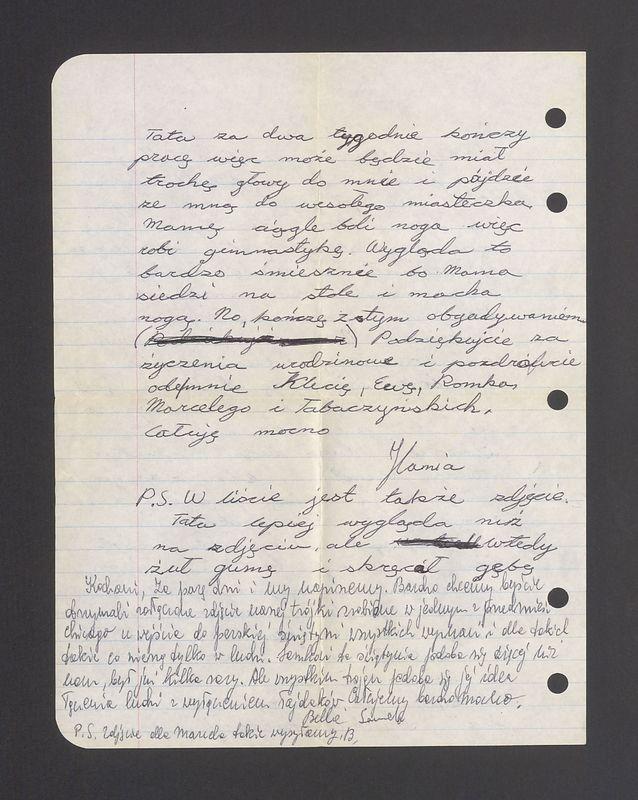 Tata za dwa tygodnie kończy
pracę więc może będzie miał
trochę głowy do mnie i pójdzie
ze mną do wesołego miasteczka.
Mamę ciągle boli noga więc
robi gimnastykę. Wygląda to
bardzo śmiesznie bo Mama
siedzi na stole i macha
nogą. No, kończę z tym obgadywaniem
Podziękujcie za
życzenia urodzinowe i pozdrówcie
odemnie Klicię, Ewę, Romka,
Marcelego i Tabaczyńskich.
Całuję mocno
Hania
P.S. W liście jest także zdjęcie.
Tata lepiej wygląda niż
na zdjęciu, ale wtedy
żuł gumę i skręcał gębę
Kochani, za parę dni i my napiszemy. Bardzo chcemy byście
otrzymali załączone zdjęcie naszej trójki zrobione w jednym z przedmieść
Chicago u wejścia do perskiej świątyni wszystkich wyznań i dla takich
także co wierzą tylko w ludzi. ta świątynia podoba się więcej niż
nam, był już kilka razy. Ale wszystkim trojgu podoba się jej idea
łączenia ludzi z wyłączeniem łajdaków. Całujemy bardzo mocno.
Bella
P.S. zdjęcie dla Marcela także wysyłamy. B.